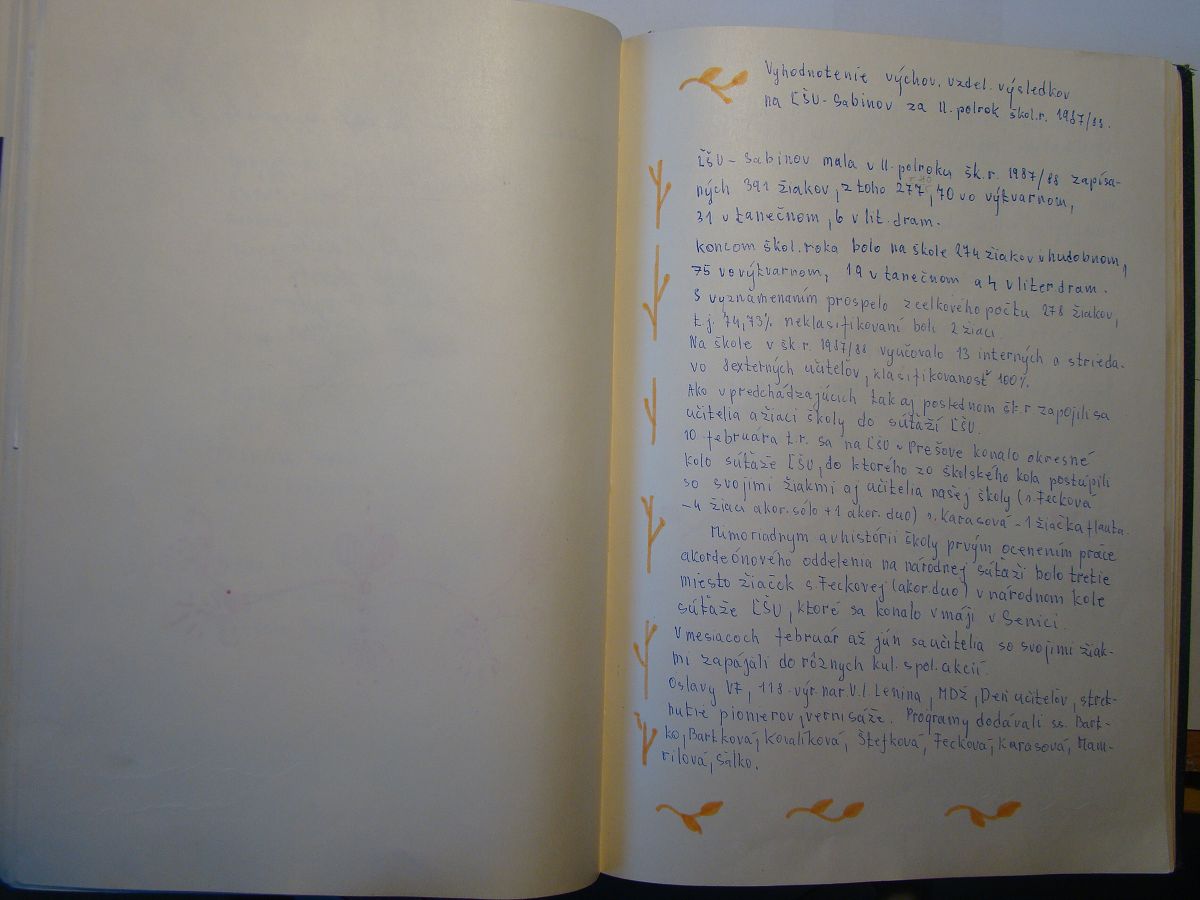 Vyhodnotenie výchov. vzdel. výsledkov
na ĽŠU - Sabinov za II. polrok škol.r. 1987/88.
ĽŠU - Sabinov mala v II. polroku šk.r. 1987/88 zapísa-
ných 391 žiakov, z toho 277, 70 vo výtvarnom,
31 v tanečnom, 6 v lit. dram.
koncom škol. roka bolo na škole 274 žiakov v hudobnom,
75 vo výtvarnom, 19 v tanečnom a 4 v liter dram.
S vyznamenaním prospelo z celkového počtu 278 žiakov,
t.j. 74,73% neklasifikovaní boli 2 žiaci.
Na škole v šk r. 1987/88 vyučovalo 13 interných a strieda-
vo 8 externých učiteľov, klasifikovanosť 100%.
Ako v predchádzajúcich tak aj poslednom šk. r zapojili sa
učitelia a žiaci školy do súťaží ĽŠU.
10 februára t.r. sa na ĽŠU v Prešove konalo okresné
kolo súťaže ĽŠU, do ktorého zo školského kola postúpili
so svojimi žiakmi aj učitelia našej školy (s. Fecková
- 4 žiaci akor. sólo + 1 akor. duo) s. Karasová - 1 žiačka flauta.
Mimoriadnym a v histórii školy prvým ocenením práce
akordeónového oddelenia na národnej súťaži bolo tretie
miesto žiačok s. Feckovej (akor. duo) v národnom kole
súťaže ĽŠU, ktoré sa konalo v máji v Senici.
V mesiacoch február až jún sa učitelia so svojimi žiak-
mi zapájali do rôznych kul. spol. akcií.
Oslavy VF, 118. výr. nar. V.I. Lenina, MDŽ, Deň učiteľov, stret-
nutie pionierov, vernisáže. Programy dodávali ss. Bart-
ko, Bartková, Kovalíková, Štefková, Fecková, Karasová, Mam-
rilová, Salko.